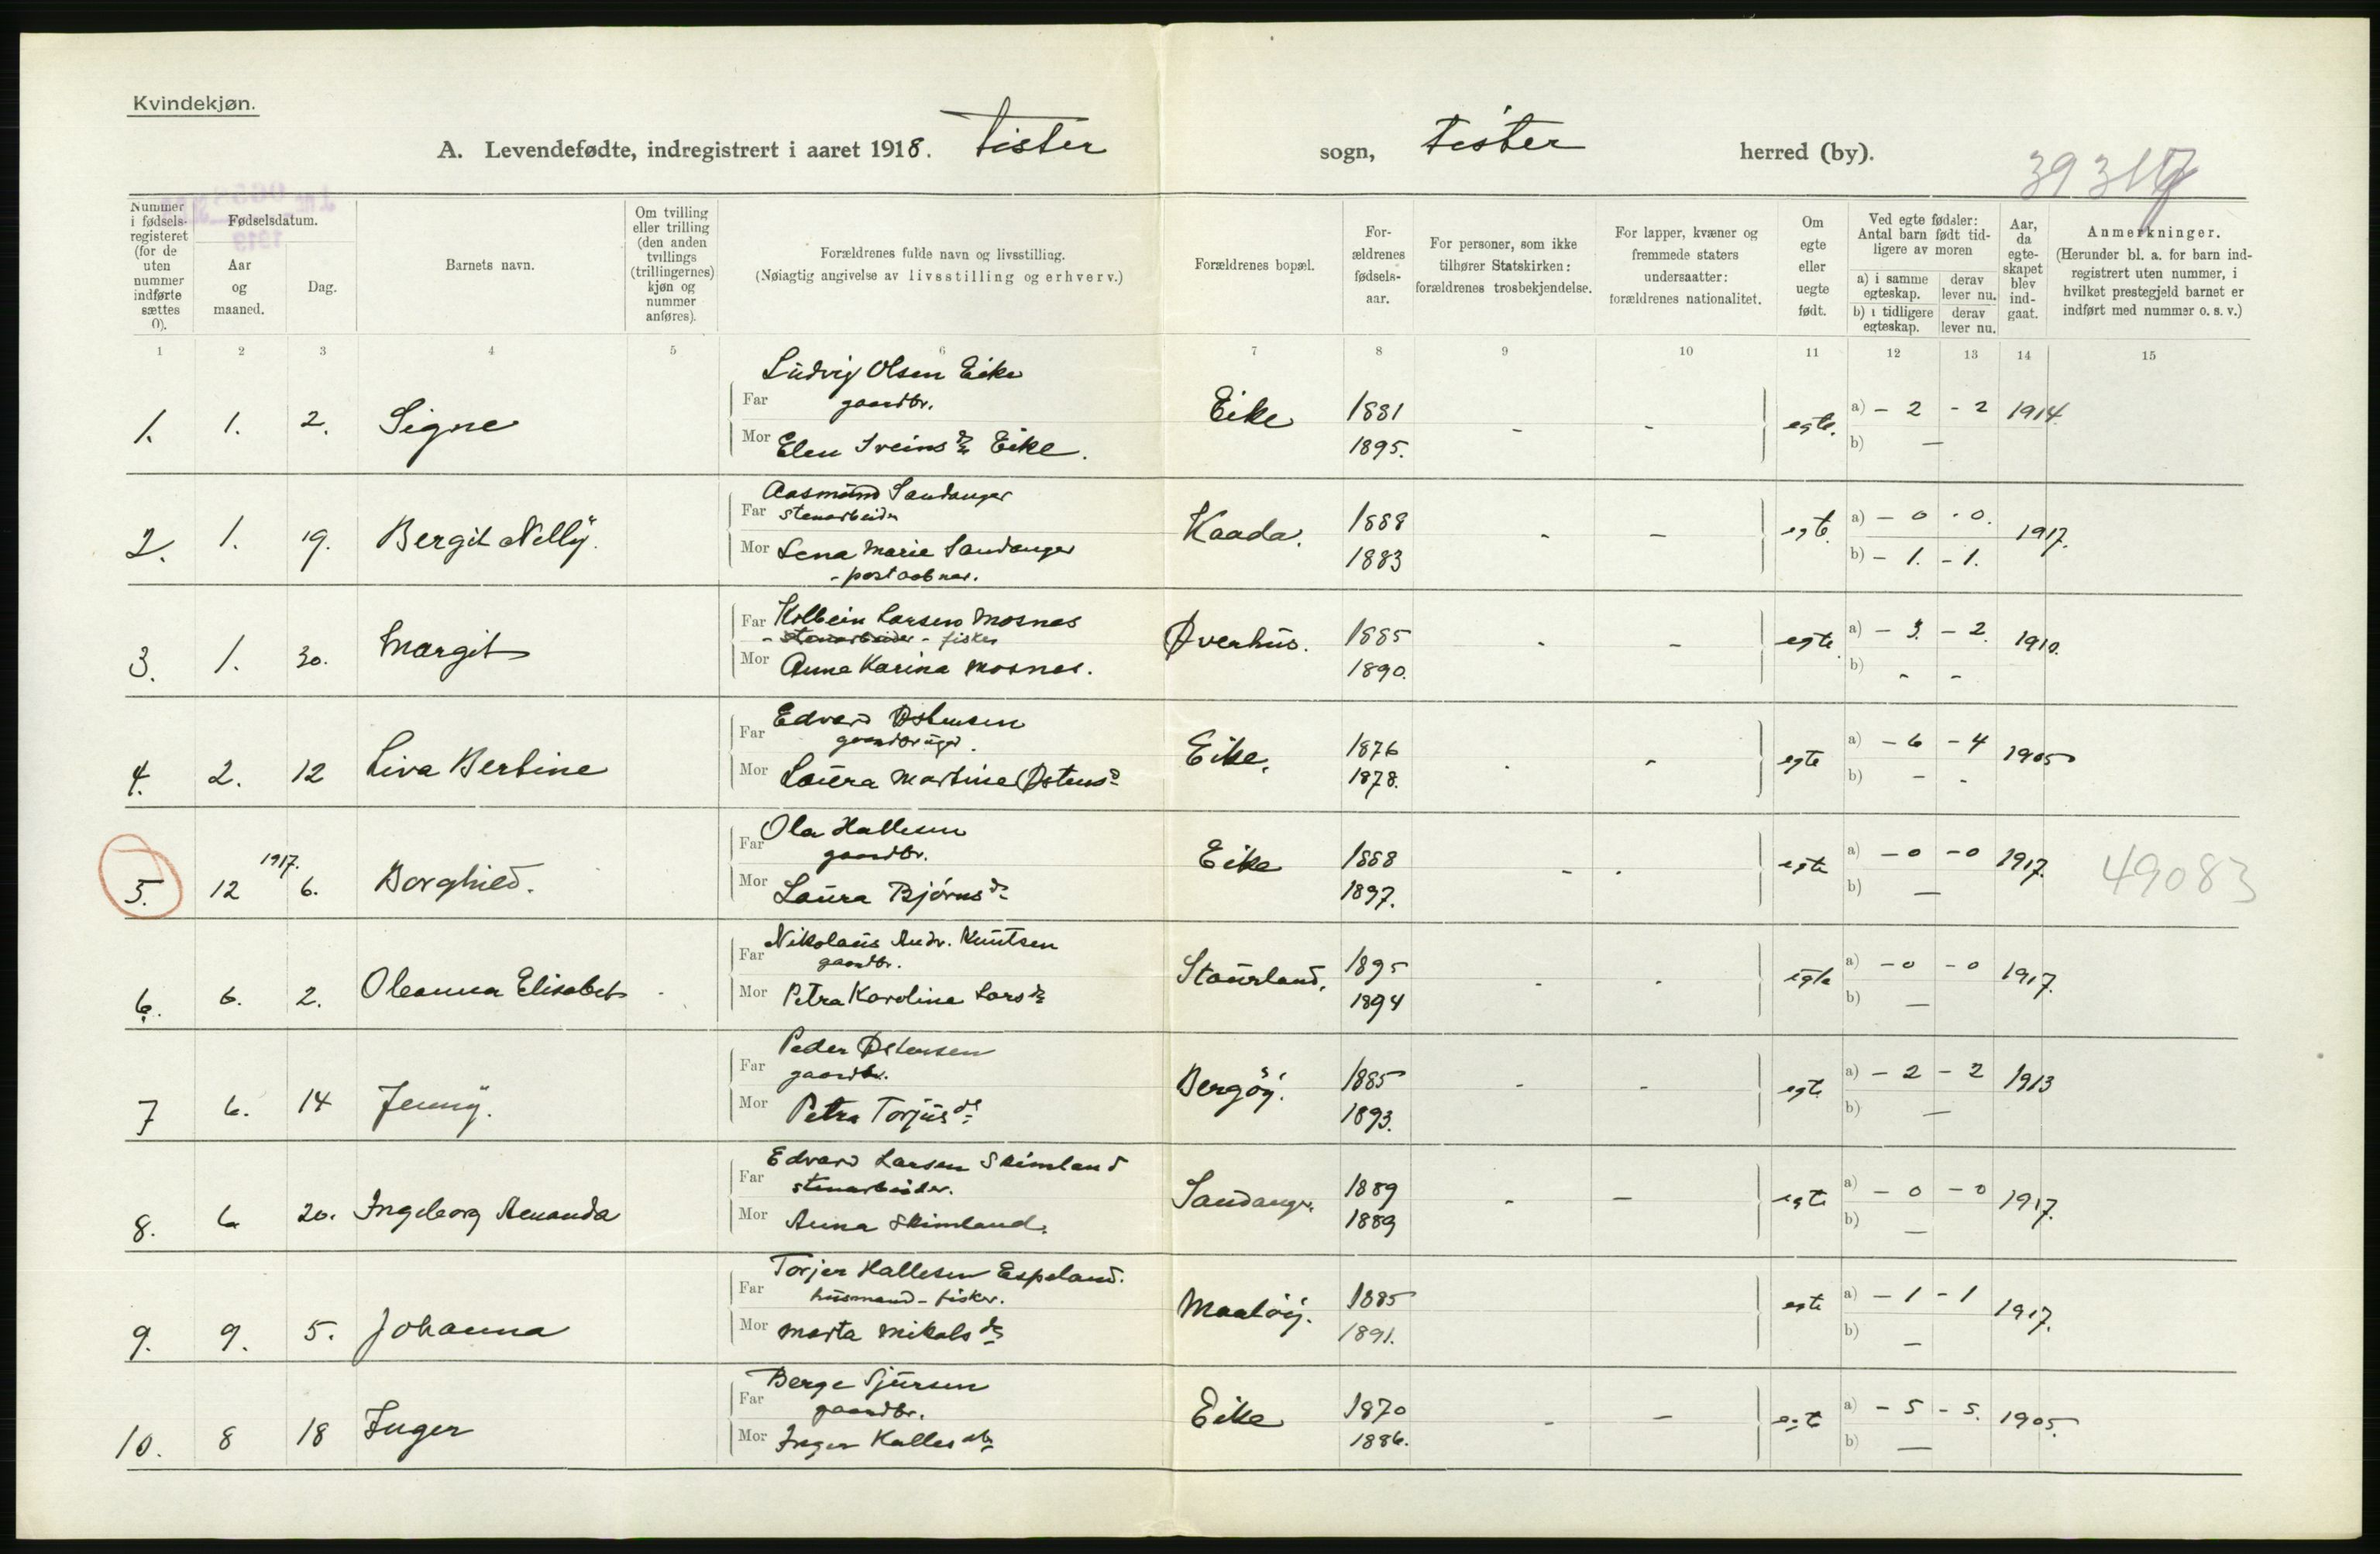 Kvindekjøn.
A. Levendefødte, indregistrert i aaret 1918. Fister sogn, Fister herred (by).
Nummer i fødselsregisteret (for de uten nummer indførte sættes 0).
Fødselsdatum.
Aar og maaned.
Dag.
Barnets navn.
Om tvilling eller trilling (den anden tvillings (trillingernes) kjøn og nummer anføres).
Forældrenes fulde navn og livsstilling.
(Nøiagtig angivelse av livsstilling og erhverv.)
Forældrenes bopæl.
Forældrenes fødselsaar.
For personer, som ikke tilhører Statskirken: forældrenes trosbekjendelse.
For lapper, kvæner og fremmede staters undersaatter: forældrenes nationalitet.
Om egte eller uegte født.
Ved egte fødsler: Antal barn født tidligere av moren
a) i samme egteskap. derav lever nu.
b) i tidligere egteskap. derav lever nu.
Aar, da egteskapet blev indgaat.
Anmerkninger.
(Herunder bl. a. for barn indregistrert uten nummer, i hvilket prestegjeld barnet er indført med nummer o. s. v.)
1 2 3 4 5 6 7 8 9 10 11 12 13 14 15
Ludvig Olsen Eike
1. 1. 2. Signe Far gaardbr. Eike 1881 - - egte. a) - 2 - 2 1914.
Mor Elen Sveinsd. Eike. 1895. b) —
Aasmund Sandanger
2. 1. 19. Bergit Nelly. Far stenarbeider Kaada. 1888 - - egte. a) - 0 - 0. 1917.
Mor Lena Marie Sandanger 1883 b) - 1. - 1.
- postaabner.
Far Kolbein Larsen Mosnes
3. 1. 30. Margit - stenarbeider - fisker Øverhus. 1885 - - egte. a) - 3. - 2. 1910.
Mor Anna Karina Mosnes. 1890. b) - -
Edvard Østensen
4. 2. 12 Liva Bertine Far gaardbruger. Eike. 1876 - - egte a) - 6 - 4 1905
Mor Laura Martine Østensd. 1878. b) - -
Ola Hallesen
5. 12 1917. 6. Borghild. Far gaardbr. Eike 1888 - - egte a) - 0 - 0 1917. 49083
Mor Laura Bjørnsd. 1897. b) —
Nikolaus Andr. Knutsen
6. 6. 2. Oleanna Elisabet Far gaardbr. Staurland. 1895 - - egte a) - 0 - 0 1917.
Mor Petra Karoline Larsd. 1894 b) —
Peder Østensen
7 6. 14 Jenny. Far gaardbr. Bergøy. 1885 - - egte a) - 2 - 2 1913
Mor Petra Torjusd. 1893. b) —
Edvard Larsen Skimland
8. 6 20. Ingeborg Amanda Far stenarbeider. Sandanger. 1889 - - egte a) - 0 - 0 1917.
Mor Anna Skimland. 1889 b) —
Torjer Hallesen Espeland.
9. 9. 5. Johanna Far husmand - fisker. Maaløy. 1885 egte a) - 1 - 1 1917.
Mor Marta Mikalsd. 1891. b) —
Berge Sjursen
10. 8 18 Inger Far gaardbr. Eike 1870 - - egte a) - 5 - 5. 1905.
Mor Inger Hallesd. 1886. b) —